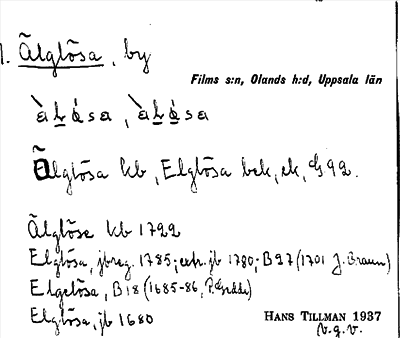 1. Älglösa, by
Films s:n, Olands h:d, Uppsala län
Älglösa kb, Elglösa bek, ek, G92.
Älglöse kb 1722
Elglösa, jbreg. 1785; extr. jb 1780; B27 (1701 J. Braun)
Elgelösa, B18 (1685-86, P. Gedda)
Elglösa, jb 1680
HANS TILLMAN 1937